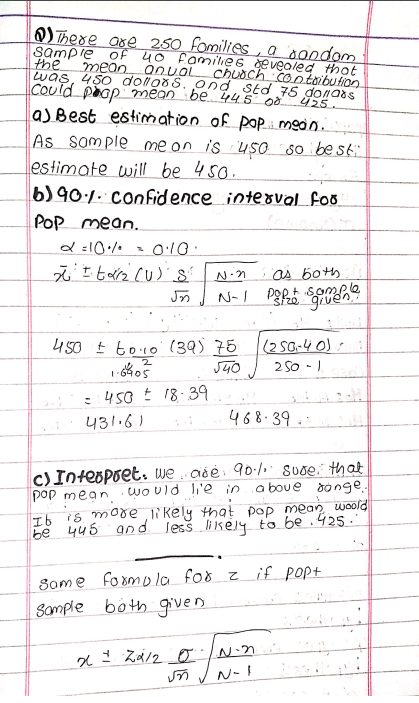 Q) There are 250 families, a random
sample of 40 families revealed that
the mean anual church contribution
was 450 dollars and std 75 dollars
could pop mean be 445 or 425.
a) Best estimation of pop mean.
As sample mean is 450 so best
estimate will be 450.
b) 90%. confidence interval for
pop mean.
α = 10% = 0.10.
x̄ ± tα/2 (v) S/√n √(N-n / N-1) as both pop + sample size given.
450 ± t0.10/2 (39) 75/√40 √((250-40) / 250-1)
1.6905
= 450 ± 18.39
431.61 468.39
c) Interpret. We are 90% sure that
pop mean would lie in above range.
It is more likely that pop mean would
be 445 and less likely to be 425.
same formula for z if pop+
sample both given
x ± Zα/2 σ/√n √(N-n / N-1)